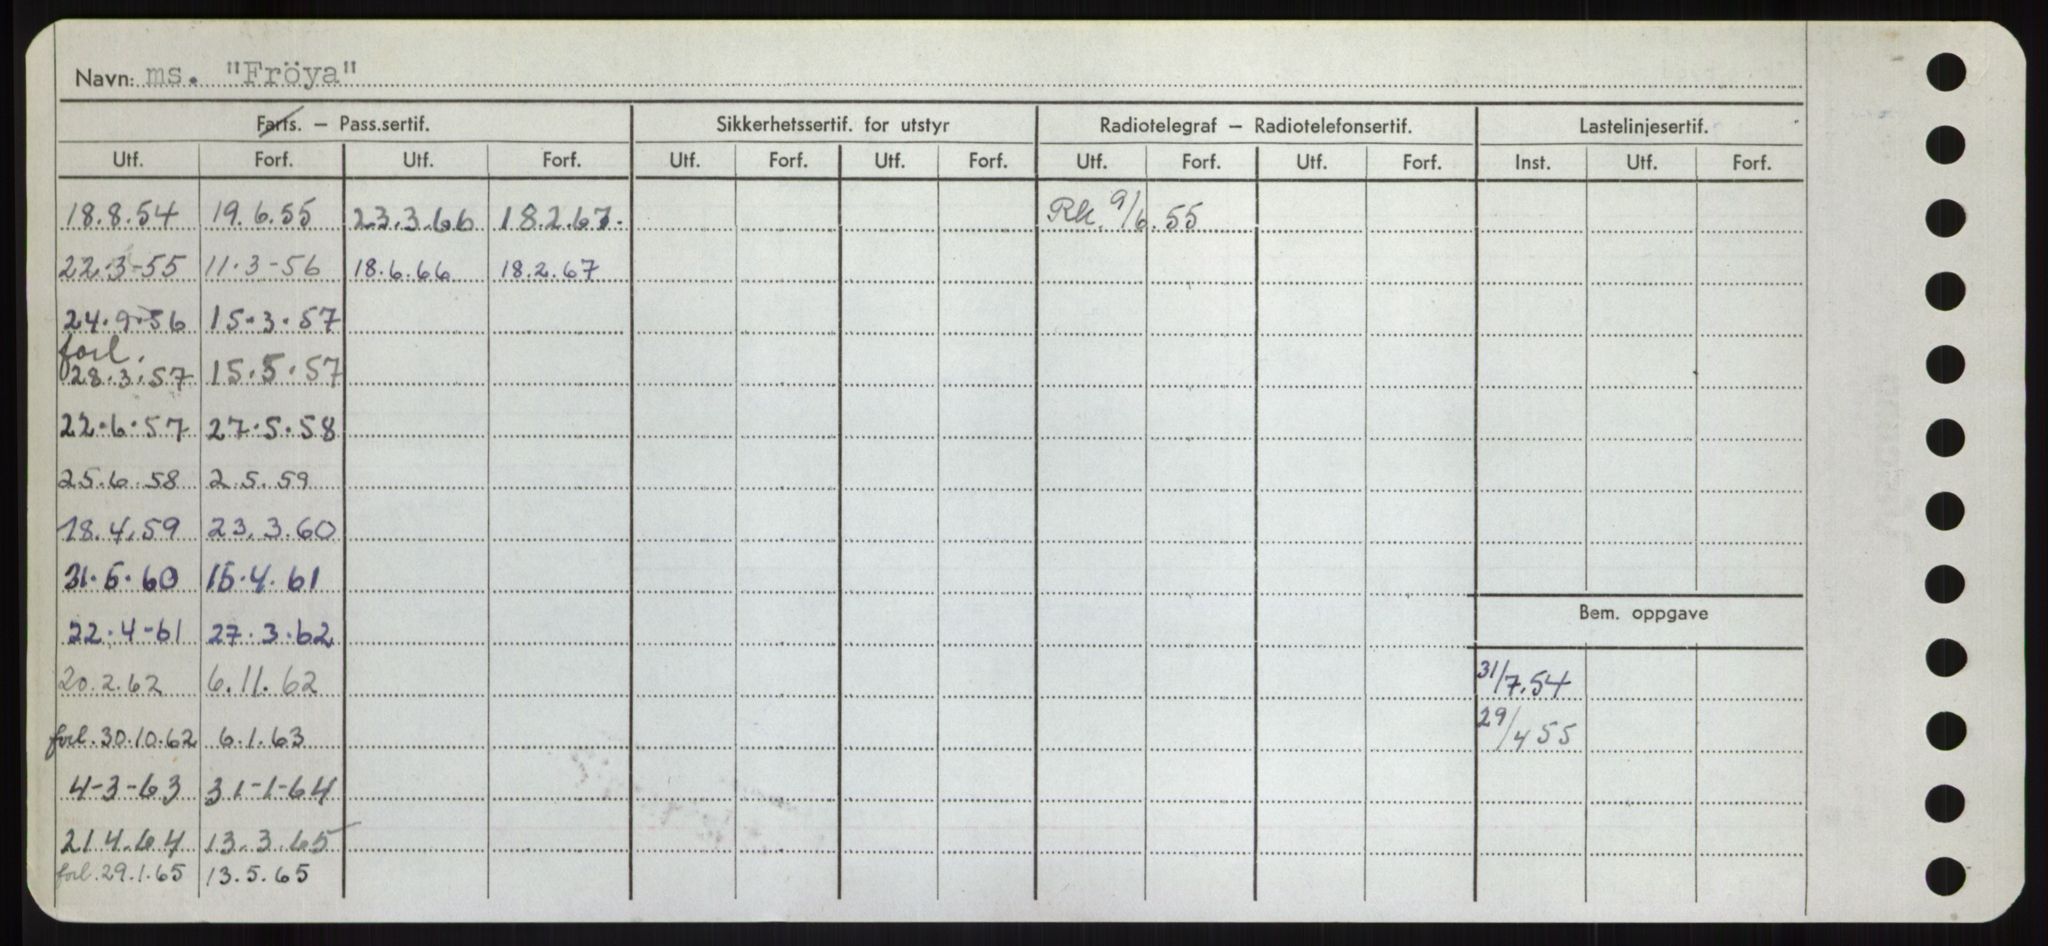 Navn: ms. "Fröya"
Farts. – Pass.sertif. Sikkerhetssertif. for utstyr Radiotelegraf – Radiotelefonsertif. Lastelinjesertif.
Utf. Forf. Utf. Forf. Utf. Forf. Utf. Forf. Utf. Forf. Utf. Forf. Inst. Utf. Forf.
18.8.54 19.6.55 23.3.66 18.2.67. Rk. 9/6.55
22.3-55 11.3-56 18.6.66 18.2.67
24.9.56 15.3.57
forl.
28.3.57 15.5.57
22.6.57 27.5.58
25.6.58 2.5.59
18.4.59 23.3.60
31.5.60 15.4.61
Bem. oppgave
22.4-61 27.3.62
20.2.62 6.11.62 31/7.54
forl. 30.10.62 6.1.63 29/4 55
4-3-63 31-1-64
21.4.64 13.3.65
forl. 29.1.65 13.5.65